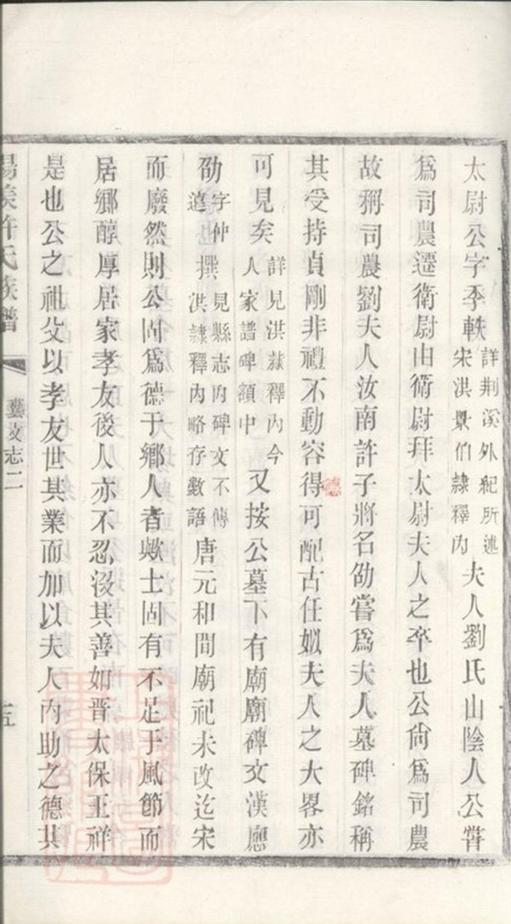 太尉公字季軼詳荆溪外紀所述宋洪景伯隸釋內夫人劉氏山陰人公嘗
爲司農遷衛尉由衛尉拜太尉夫人之卒也公尙爲司農
故稱司農劉夫人汝南許子將名劭嘗爲夫人墓碑銘稱
其受持貞剛非禮不動容得可配古任姒夫人之大畧亦
可見矣詳見洪隸釋內今人家譜碑額中又按公墓下有廟廟碑文漢應
劭字仲遠撰見縣志內碑文不傳洪隸釋內略存數語唐元和間廟祀未改迄宋
而廢然則公固爲德于鄉人者歟士固有不足于風節而
居鄉醇厚居家孝友後人亦不忍沒其善如晋太保王祥
是也公之祖父以孝友世其業而加以夫人內助之德其
陽羨許氏族譜
藝文志二
五